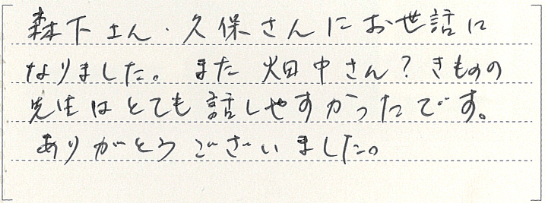 森下さん・久保さんにお世話に
なりました。また畑中さん？きものの
先生はとても話しやすかったです。
ありがとうございました。